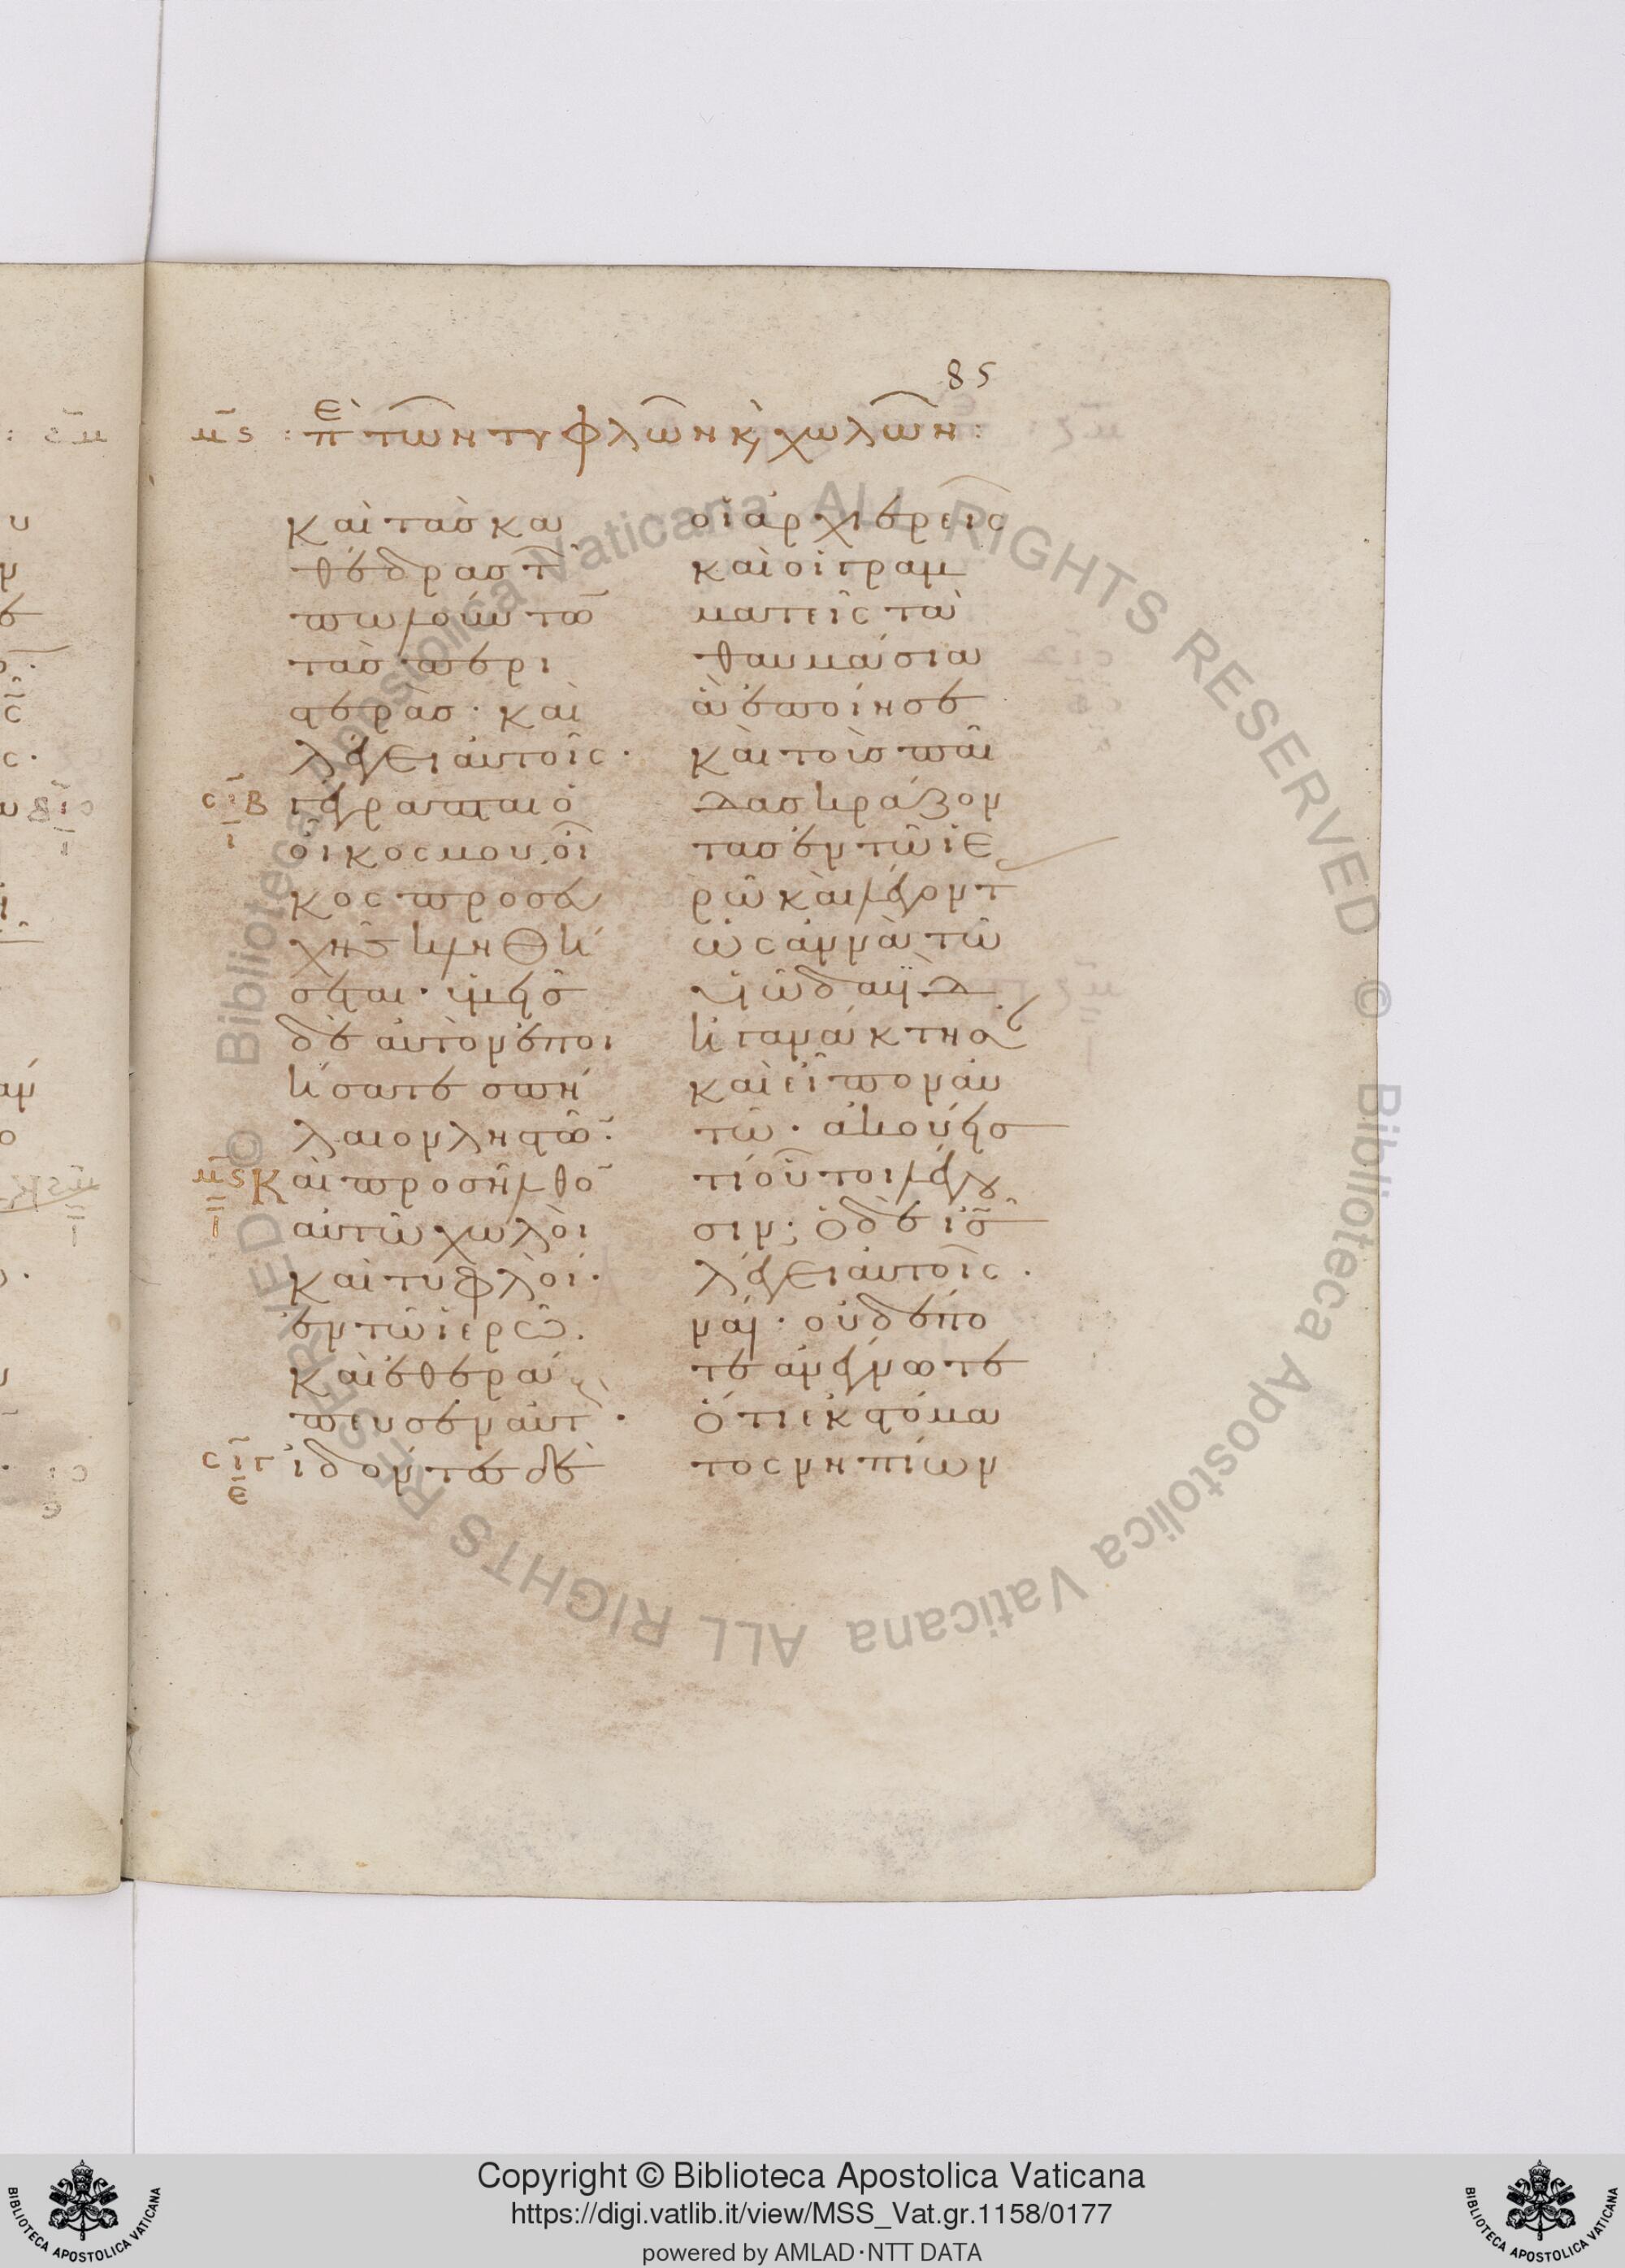 85
μ̅ς : Ἐπὶ τῶν τυφλῶν κ̀ χωλῶν:
καὶ τὰσ κα
θέδρασ τ̅
πωλούντω̅
τὰσ περι
στερὰσ· καὶ
λέγει αὐτοῖς·
σ̅ι̅β γέγραπται ὁ
ι οἶκοσ μου οἶ
κος προσευ
χῆς κληθή
σεται· ὑμεῖσ
δὲ αὐτὸν ἐποι
ήσατε σπή
λαιον ληστῶ̅·
μ̅ς Καὶ προσῆλθο̅
ι αὐτῶ χωλοὶ
καὶ τυφλοί·
ἐν τῶ ἱερῶ.
καὶ ἐθερά
πευσεν αὐτ·
σ̅ι̅γ ἰδόντεσ δὲ
ε
οἱ ἀρχιερεῖς
καὶ οἱ γραμ
ματεῖς τὰ
θαυμάσια
ἃ ἐποίησε
καὶ τοὺσ παῖ
δασ κράζον
τασ ἐν τῶ ἱε
ρῶ καὶ λέγοντ
ὡς ἀννὰ τῶ
υἱῶ δαυΐδ
ἠγανάκτησ
καὶ εἶπον αὐ
τῶ· ἀκούεισ
τί οὗτοι λέγου
σιν; ὁ δὲ ι̅σ̅
λέγει αὐτοῖς·
ναί· οὐδέπο
τε ἀνέγνωτε
ὅτι ἐκ στόμα
τος νηπίων
Copyright © Biblioteca Apostolica Vaticana
https://digi.vatlib.it/view/MSS_Vat.gr.1158/0177
powered by AMLAD·NTT DATA
BIBLIOTECA APOSTOLICA VATICANA
BIBLIOTECA APOSTOLICA VATICANA
© Biblioteca Apostolica Vaticana ALL RIGHTS RESERVED © Biblioteca Apostolica Vaticana ALL RIGHTS RESERVED